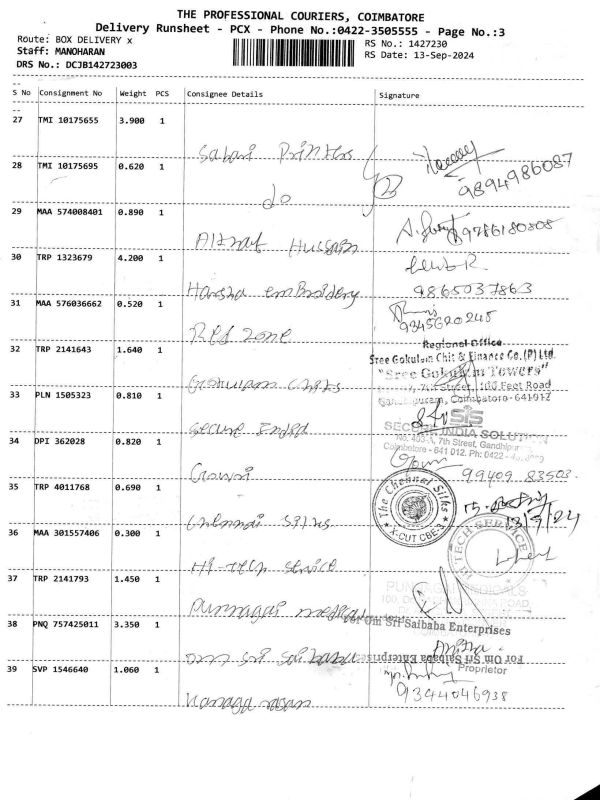 THE PROFESSIONAL COURIERS, COIMBATORE
Delivery Runsheet - PCX - Phone No.:0422-3505555 - Page No.:3
Route: BOX DELIVERY x
RS No.: 1427230
Staff: MANOHARAN
RS Date: 13-Sep-2024
DRS No.: DCJB142723003
S No Consignment No Weight PCS Consignee Details Signature
27 TMI 10175655 3.900 1
Sabari Printers
28 TMI 10175695 0.620 1
9894986087
do
29 MAA 574008401 0.890 1
9786180808
Altraf Hussain
30 TRP 1323679 4.200 1
Harsha embroidery
9865037863
31 MAA 576036662 0.520 1
9345620245
Red zone
32 TRP 2141643 1.640 1
Regional Office
Sree Gokulam Chit & Finance Co.(P) Ltd.
"Sree Gokulam Towers"
Gokulam Chits
7th Street, 100 Feet Road
33 PLN 1505323 0.810 1
Gandhipuram, Coimbatore-641012
SIS
Secure India
SECURE INDIA SOLUTION
34 DPI 362028 0.820 1
No. 403-A, 7th Street, Gandhipur
Coimbatore - 641 012. Ph: 0422 -
Gowri
99409 83503
35 TRP 4011768 0.690 1
The Chennai Silks
X-CUT CBE-3
13/9/24
Chennai Silks
36 MAA 301557406 0.300 1
HI TECH SERVICE
Hi-Tech Service
37 TRP 2141793 1.450 1
Punnagai medical
38 PNQ 757425011 3.350 1
For Om Sri Saibaba Enterprises
Om Sri Saibaba
For Om Sri Saibaba Enterprises
Proprietor
39 SVP 1546640 1.060 1
9344046938